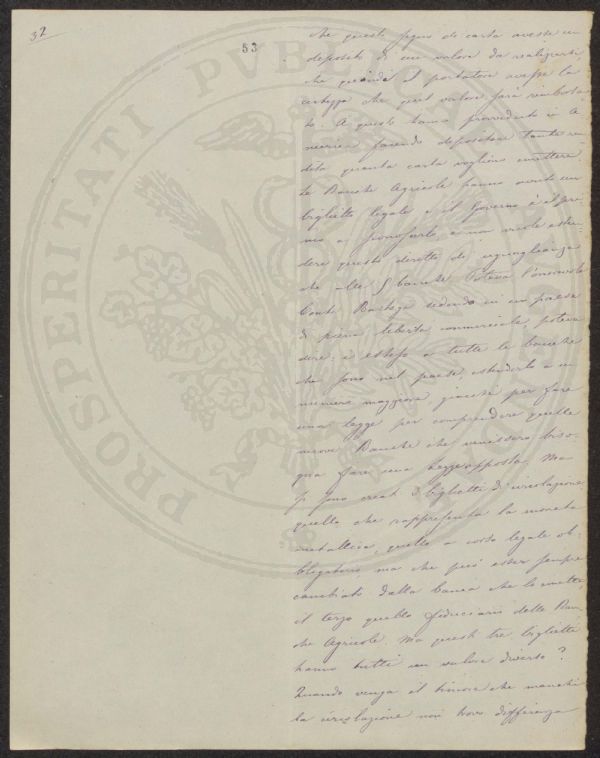 32
53
che questo pegno di carta avesse un
deposito di un valore da realizzarsi,
che quindi il portatore avesse la
certezza che quel valore sarà rimborsa-
to. A questo hanno provveduto in A-
merica facendo depositare tanta ren-
dita quanta carta vogliono emettere.
Le Banche Agricole hanno avuto un
biglietto legale e il Governo è il pri-
mo a
dere questo diritto di uguaglianza
che alle 5 banche. Poteva l'onorevole
Conte Bastogi vedendo in un paese
di piena libertà commerciale, poteva
dire: è esteso a tutte le banche
che sono nel paese, estenderlo a un
numero maggiore, giacchè per fare
una legge per comprendere quelle
nuove Banche che venissero biso-
gna fare una legge apposta. Ma
si sono creati 3 biglietti di circolazione
quello che rappresenta la moneta
metallica, quello a corso legale ob-
bligatorio, ma che può esser sempre
cambiato dalla banca che lo emette,
il terzo quello fiduciario delle Ban-
che Agricole. Ma questi tre biglietti
hanno tutti un valore diverso?
Quando venga il timore che manchi
la circolazione non trovo differenza
PROSPERITATI PVBLICAE